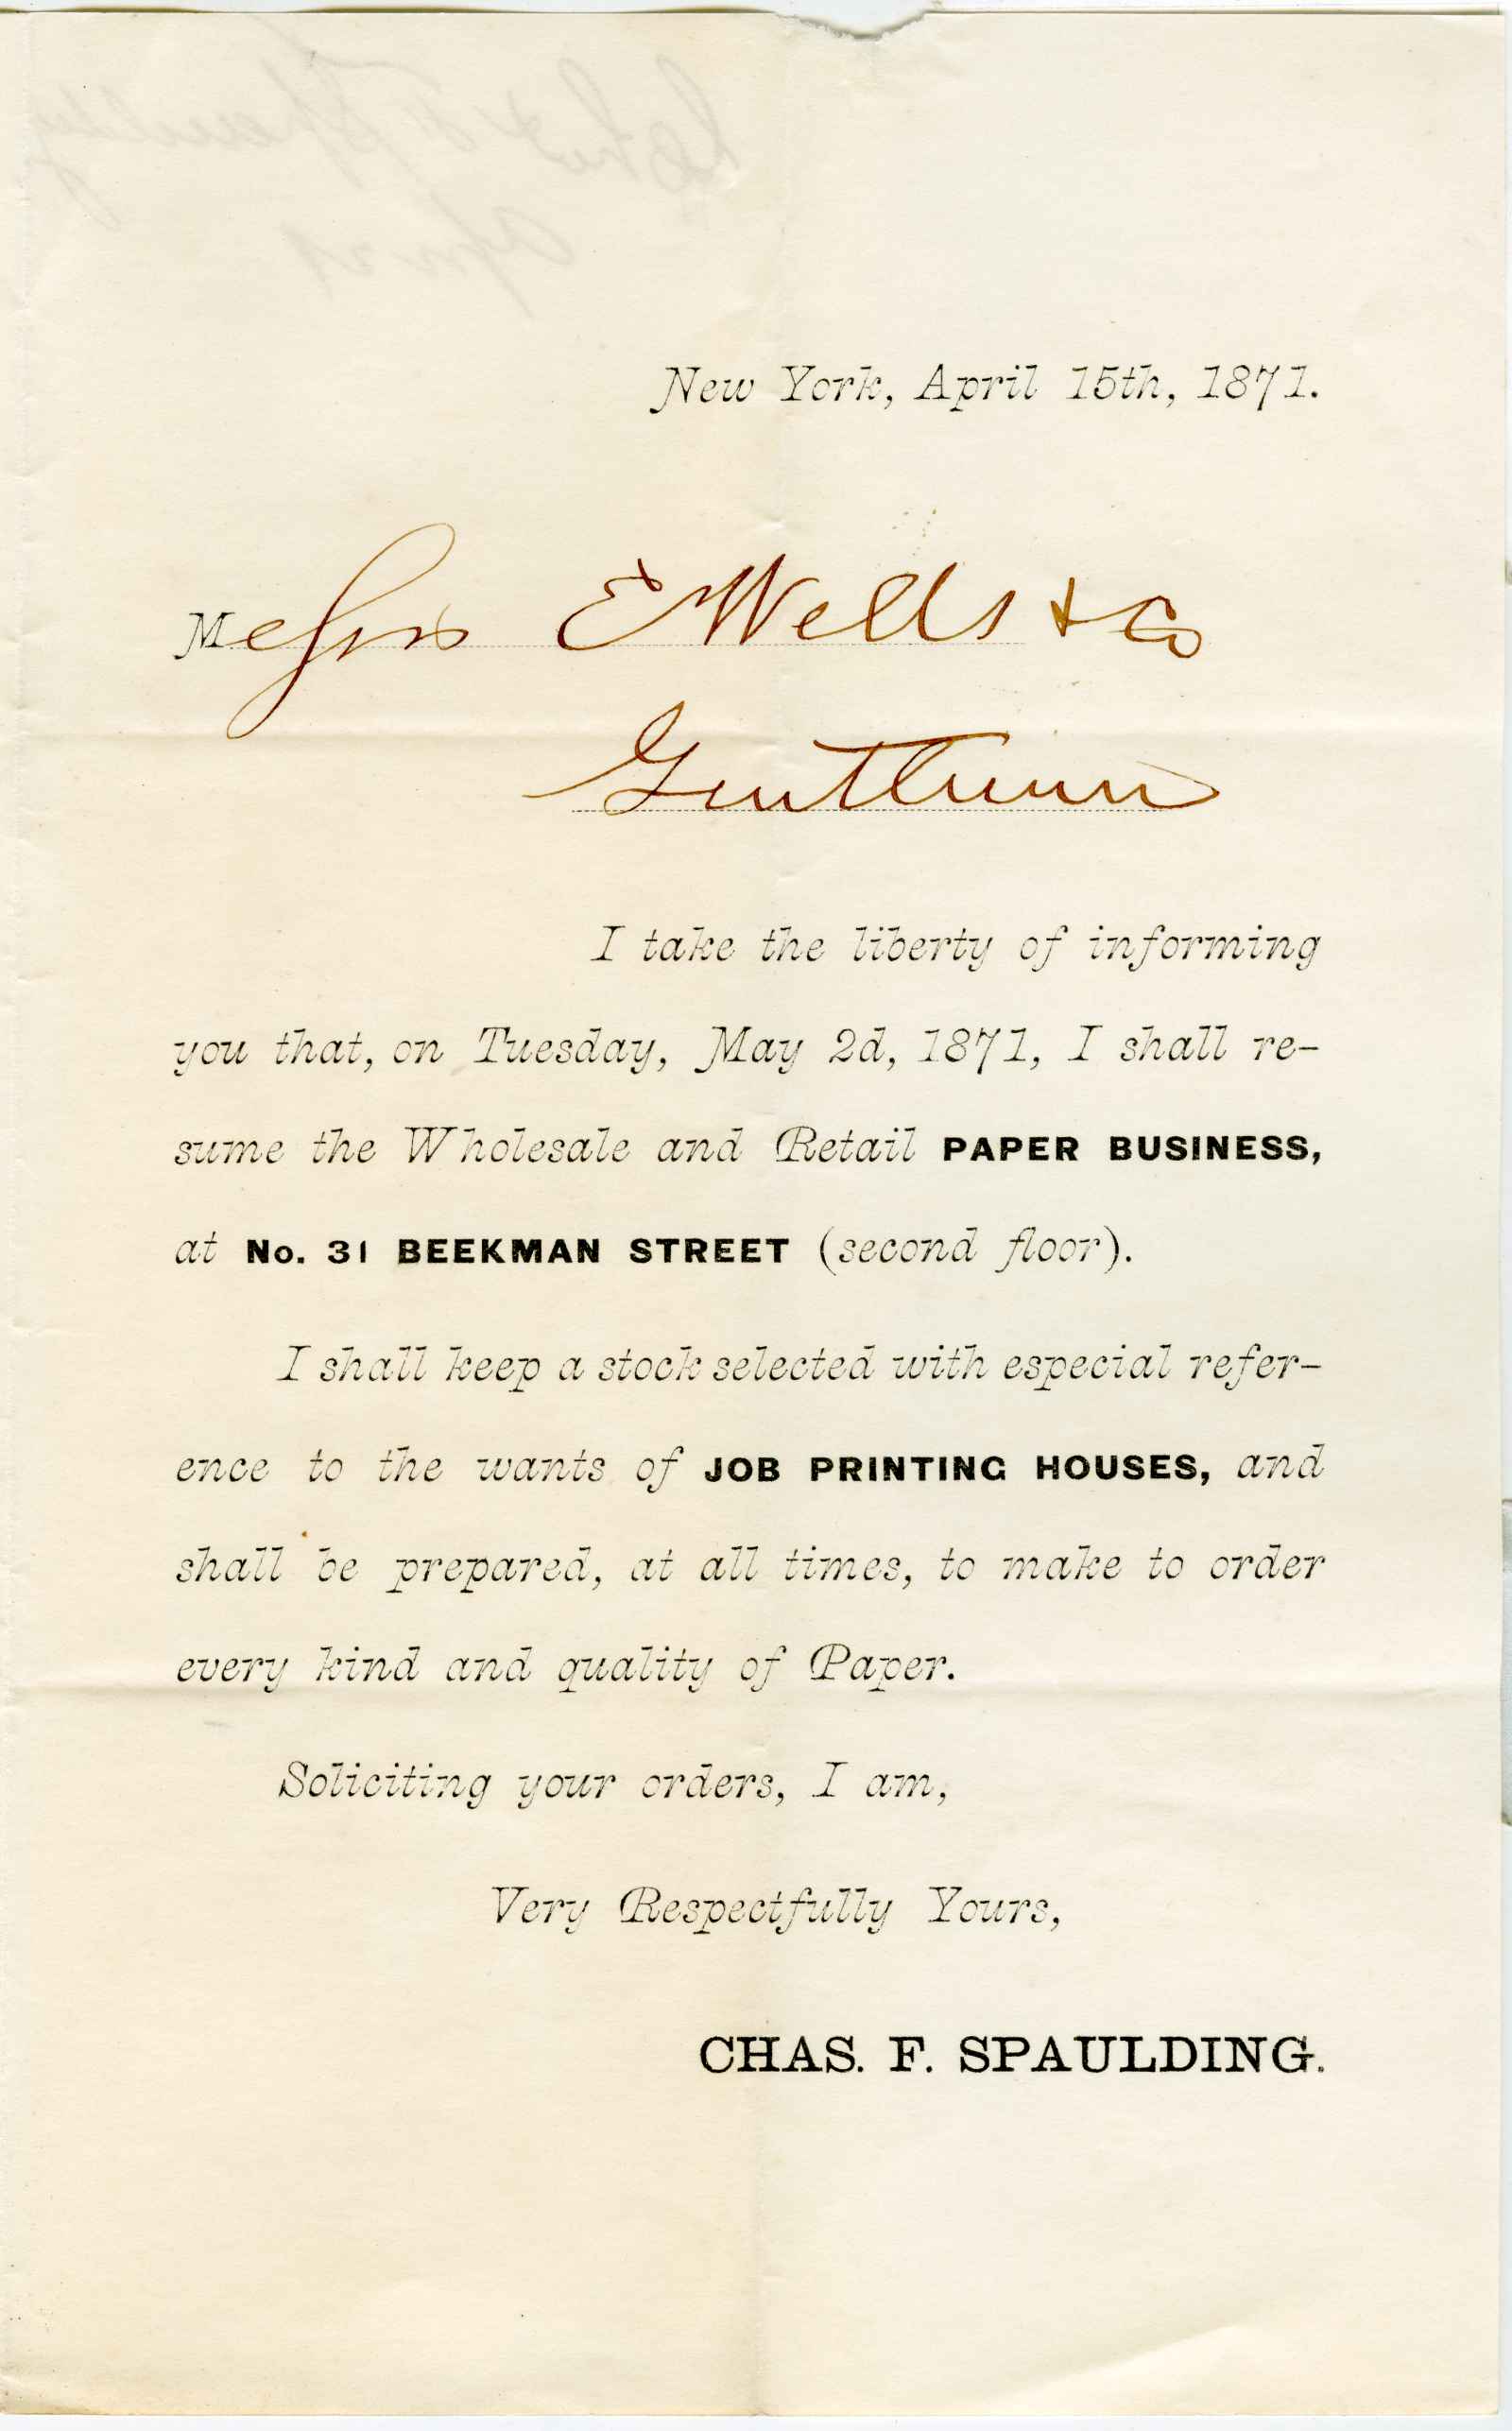 New York, April 15th, 1871.
Messrs E Wells & Co
Gentlemen
I take the liberty of informing
you that, on Tuesday, May 2d, 1871, I shall re-
sume the Wholesale and Retail PAPER BUSINESS,
at No. 31 BEEKMAN STREET (second floor).
I shall keep a stock selected with especial refer-
ence to the wants of JOB PRINTING HOUSES, and
shall be prepared, at all times, to make to order
every kind and quality of Paper.
Soliciting your orders, I am,
Very Respectfully Yours,
CHAS. F. SPAULDING.